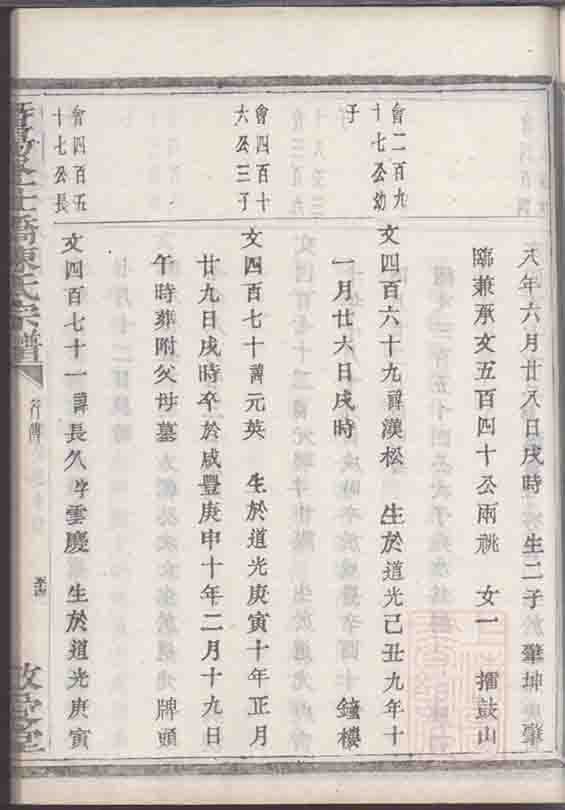 八年六月廿八日戌時 生二子 肇坤 肇
臨兼承文五百四十公兩祧 女一 擂鼓山
會二百九
十七公幼
子
文四百六十九諱漢松 生於道光己丑九年十
一月廿六日戌時 鐘樓
會四百十
六公三子
文四百七十諱元英 生於道光庚寅十年正月
廿九日戌時卒於咸豐庚申十年二月十九日
午時葬附父母墓 牌頭
會四百五
十七公長
文四百七十一諱長久字雲慶 生於道光庚寅
陳氏宗譜
行傳